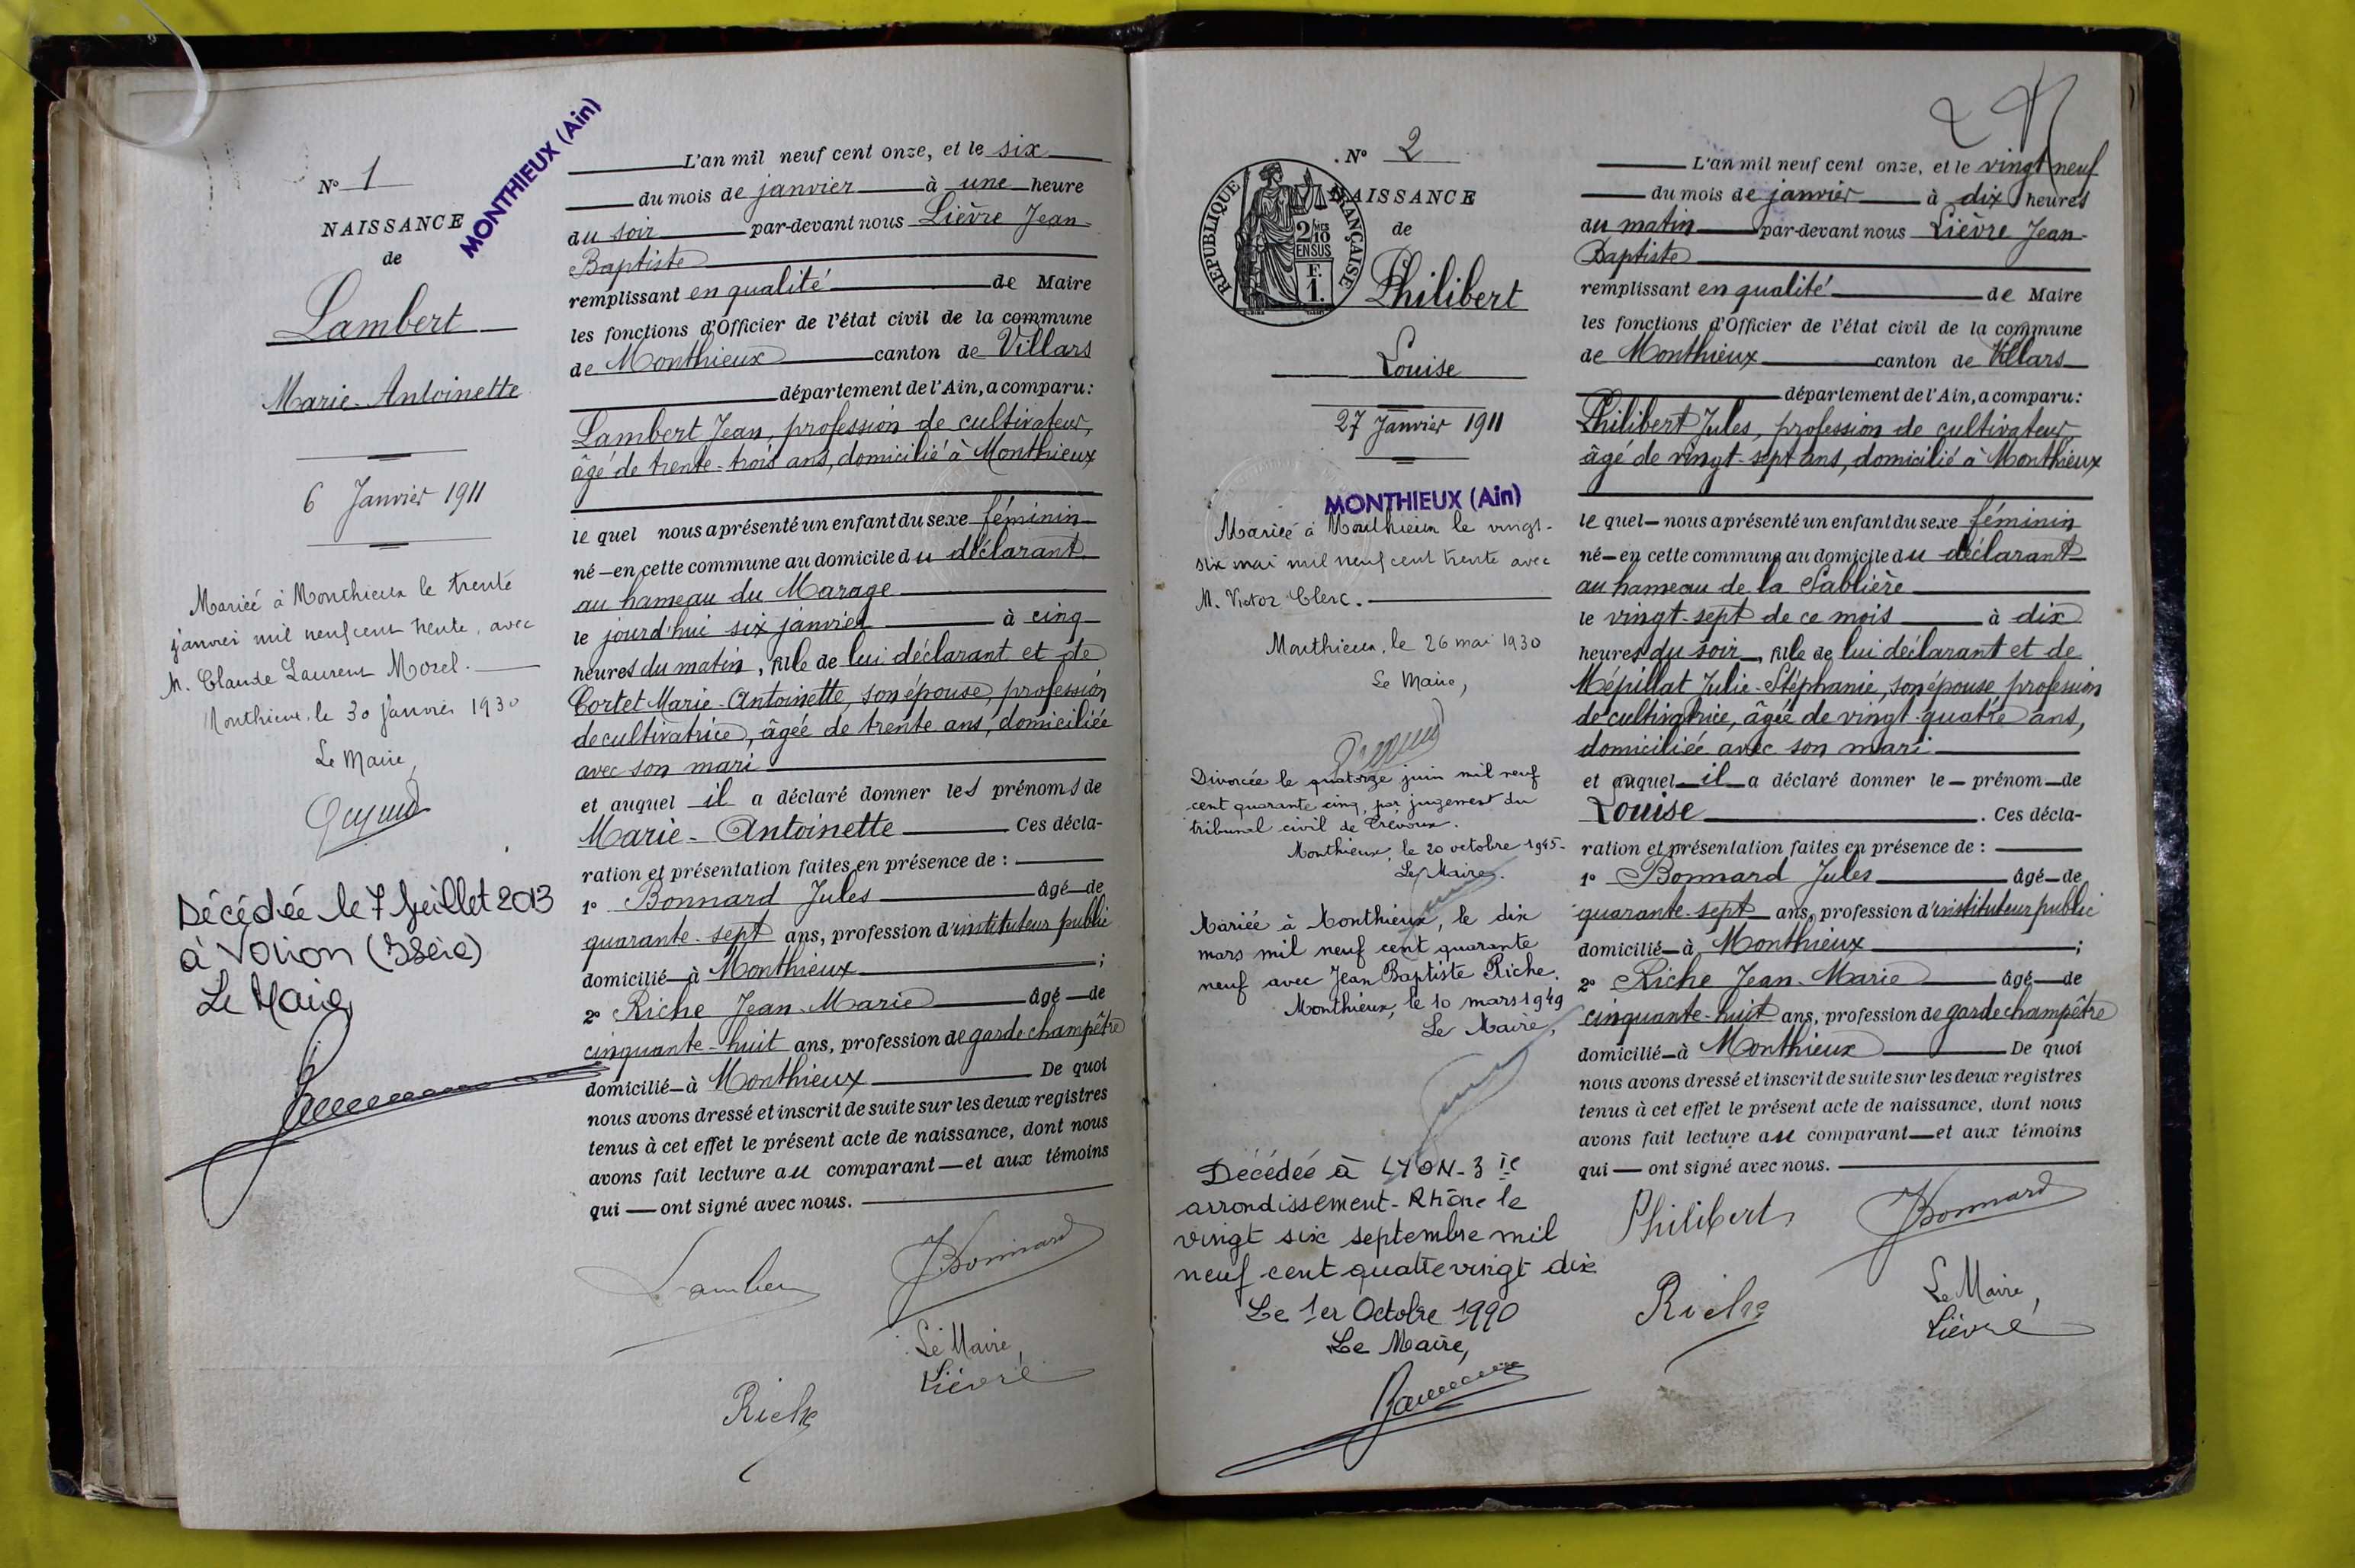 MONTHIEUX (Ain)
N° 1
NAISSANCE
de
Lambert
Marie-Antoinette
6 Janvier 1911
Mariée à Monthieux le trente
janvier mil neuf cent trente, avec
M. Claude Laurent Morel.
Monthieux, le 30 janvier 1930
Le Maire,
Décédée le 7 Juillet 2013
à Voiron (Isère)
Le Maire
L'an mil neuf cent onze, et le six
du mois de janvier à une heure
du soir par-devant nous Lièvre Jean-
Baptiste
remplissant en qualité de Maire
les fonctions d'Officier de l'état civil de la commune
de Monthieux canton de Villars
département de l'Ain, a comparu:
Lambert Jean, profession de cultivateur,
âgé de trente-trois ans, domicilié à Monthieux
le quel nous a présenté un enfant du sexe féminin
né—en cette commune au domicile du déclarant
au hameau du Marage
le jourd'hui six janvier à cinq
heures du matin, fille de lui déclarant et de
Cortet Marie-Antoinette, son épouse, profession
de cultivatrice, âgée de trente ans, domiciliée
avec son mari
et auquel il a déclaré donner les prénoms de
Marie-Antoinette Ces décla-
ration et présentation faites en présence de :
1° Bonnard Jules âgé—de
quarante-sept ans, profession d'instituteur public
domicilié—à Monthieux ;
2° Riche Jean-Marie âgé—de
cinquante-huit ans, profession de garde champêtre
domicilié—à Monthieux De quoi
nous avons dressé et inscrit de suite sur les deux registres
tenus à cet effet le présent acte de naissance, dont nous
avons fait lecture au comparant—et aux témoins
qui — ont signé avec nous.
Lambert JBonnard
Le Maire,
Lièvre
Riche
N° 2
NAISSANCE
de
RÉPUBLIQUE FRANÇAISE
2/10 MES
EN SUS
F.
1.
Philibert
Louise
27 Janvier 1911
MONTHIEUX (Ain)
Mariée à Monthieux le vingt-
six mai mil neuf cent trente avec
M. Victor Clerc.
Monthieux, le 26 mai 1930
Le Maire,
Divorcée le quatorze juin mil neuf
cent quarante cinq, par jugement du
tribunal civil de Trévoux.
Monthieux, le 20 octobre 1945-
Le Maire.
Mariée à Monthieux, le dix
mars mil neuf cent quarante
neuf avec Jean Baptiste Riche.
Monthieux, le 10 mars 1949
Le Maire,
Décédée à LYON-3 ie
arrondissement-Rhône le
vingt six septembre mil
neuf cent quatre vingt dix
Le 1er Octobre 1990
Le Maire,
L'an mil neuf cent onze, et le vingt neuf
du mois de janvier à dix heures
du matin par-devant nous Lièvre Jean-
Baptiste
remplissant en qualité de Maire
les fonctions d'Officier de l'état civil de la commune
de Monthieux canton de Villars
département de l'Ain, a comparu:
Philibert Jules, profession de cultivateur,
âgé de vingt-sept ans, domicilié à Monthieux
le quel—nous a présenté un enfant du sexe féminin
né—en cette commune au domicile du déclarant
au hameau de la Sablière
le vingt-sept de ce mois à dix
heures du soir, fille de lui déclarant et de
Mépillat Julie-Stéphanie, son épouse, profession
de cultivatrice, âgée de vingt-quatre ans,
domiciliée avec son mari
et auquel il a déclaré donner le—prénom—de
Louise. Ces décla-
ration et présentation faites en présence de :
1° Bonnard Jules âgé—de
quarante-sept ans, profession d'instituteur public
domicilié—à Monthieux ;
2° Riche Jean-Marie âgé—de
cinquante-huit ans, profession de garde champêtre
domicilié—à Monthieux De quoi
nous avons dressé et inscrit de suite sur les deux registres
tenus à cet effet le présent acte de naissance, dont nous
avons fait lecture au comparant—et aux témoins
qui — ont signé avec nous.
Philibert JBonnard
Le Maire,
Riche Lièvre